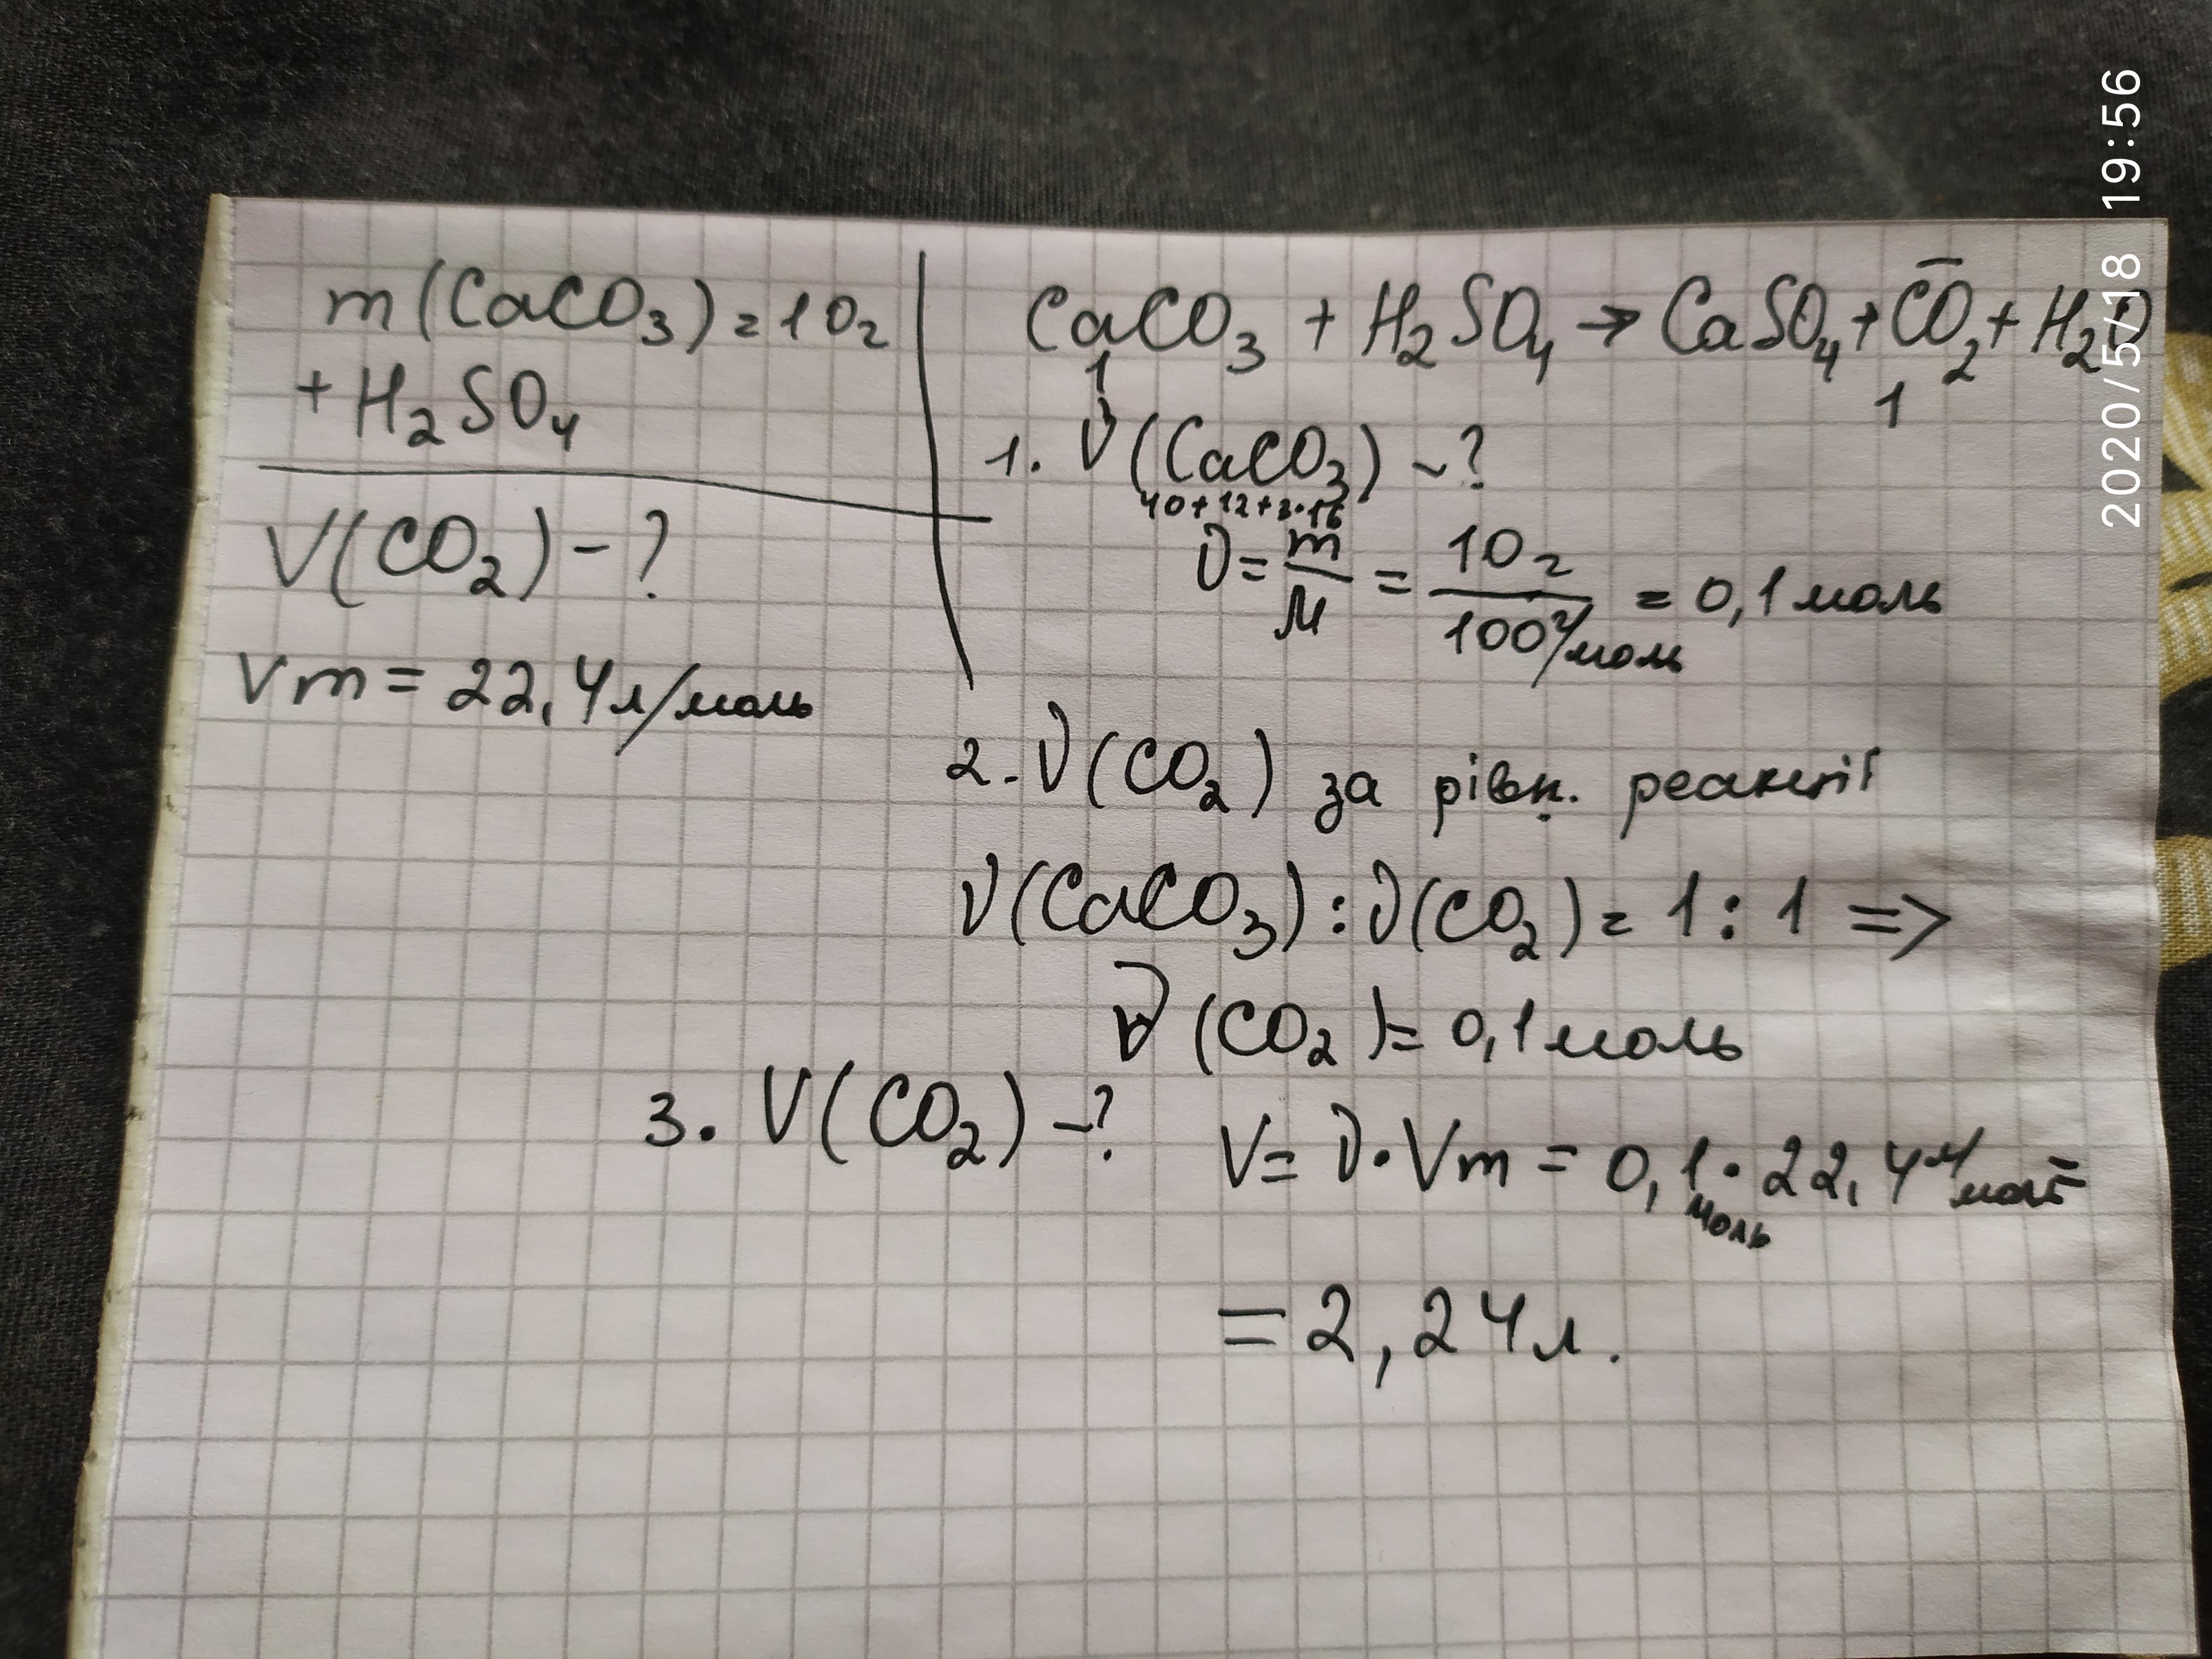 m(CaCO₃)=10г
+H₂SO₄
V(CO₂)-?
Vm=22,4л/моль
CaCO₃+H₂SO₄→CaSO₄+CO₂+H₂O
1 1
1. ν(CaCO₃)-?
40+12+3·16
ν=m/M=10г/100г/моль=0,1моль
2. ν(CO₂) за рівн. реакції
ν(CaCO₃):ν(CO₂)=1:1=>
ν(CO₂)=0,1моль
3. V(CO₂)-? V=ν·Vm=0,1моль·22,4л/моль=
=2,24л.
2020/5/18 19:56